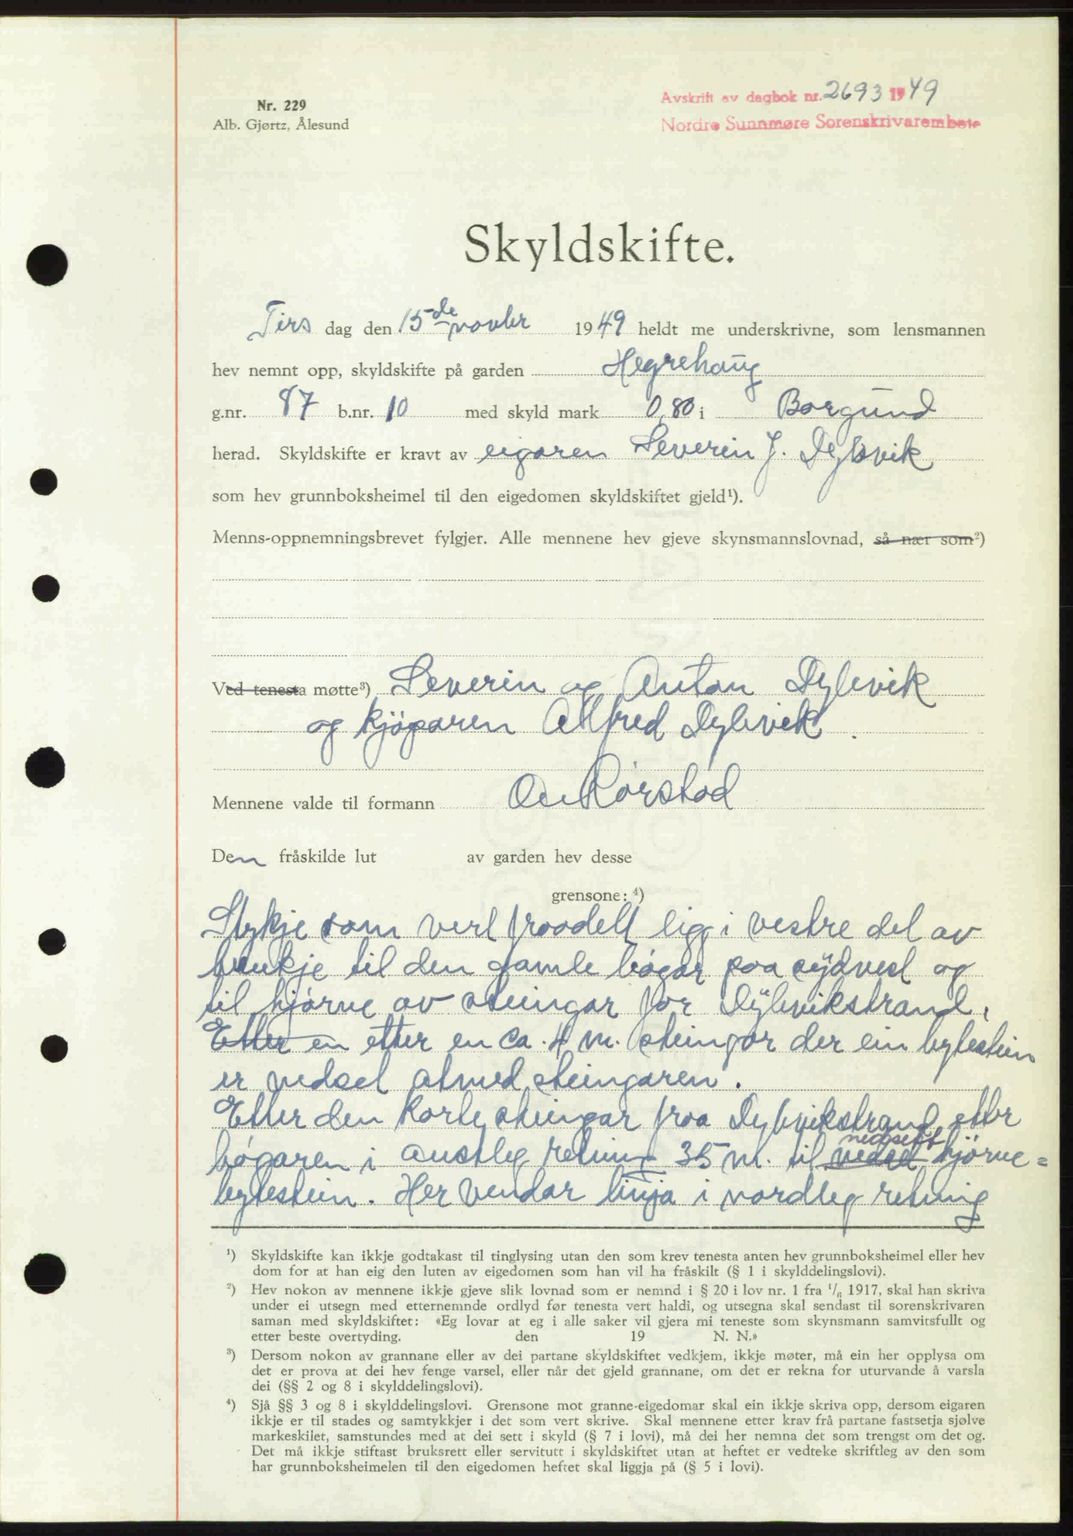 Nr. 229
Alb. Gjørtz, Ålesund
Avskrift av dagbok nr. 2693 1949
Nordre Sunnmøre Sorenskrivarembete
Skyldskifte.
Tirs dag den 15de novbr 1949 heldt me underskrivne, som lensmannen
hev nemnt opp, skyldskifte på garden Hegrehaug
g.nr. 87 b.nr. 10 med skyld mark 0,80 i Borgund
herad. Skyldskifte er kravt av eigaren Severin J. Dybvik
som hev grunnboksheimel til den eigedomen skyldskiftet gjeld¹).
Menns-oppnemningsbrevet fylgjer. Alle mennene hev gjeve skynsmannslovnad, så nær som²)
Ved tenesta møtte³) Severin og Anton Dybvik
og kjøparen Alfred Dybvik.
Mennene valde til formann Rørstad
Den fråskilde lut av garden hev desse
grensone: ⁴)
Stykje som vert fraadelt ligg i vestre del av
bruukje til den gamle bøgar paa sydvest og
til hjørne av steingar for Dybvikstrand,
Etter en etter en ca. 4 m. steingar der ein bytestein
er nedset atmed steingaren.
Etter den korte steingar fraa Dybvikstrand etter
bøgaren i austleg retning 35 m. til nedset nedsett hjørne=
bytestein. Her vendar linja i nordleg retning
¹) Skyldskifte kan ikkje godtakast til tinglysing utan den som krev tenesta anten hev grunnboksheimel eller hev
dom for at han eig den luten av eigedomen som han vil ha fråskilt (§ 1 i skylddelingslovi).
²) Hev nokon av mennene ikkje gjeve slik lovnad som er nemnd i § 20 i lov nr. 1 fra ¹/₆ 1917, skal han skriva
under ei utsegn med etternemnde ordlyd før tenesta vert haldi, og utsegna skal sendast til sorenskrivaren
saman med skyldskiftet: «Eg lovar at eg i alle saker vil gjera mi teneste som skynsmann samvitsfullt og
etter beste overtyding. den 19 N. N.»
³) Dersom nokon av grannane eller av dei partane skyldskiftet vedkjem, ikkje møter, må ein her opplysa om
det er prova at dei hev fenge varsel, eller når det gjeld grannane, om det er rekna for uturvande å varsla
dei (§§ 2 og 8 i skylddelingslovi).
⁴) Sjå §§ 3 og 8 i skylddelingslovi. Grensone mot granne-eigedomar skal ein ikkje skriva opp, dersom eigaren
ikkje er til stades og samtykkjer i det som vert skrive. Skal mennene etter krav frå partane fastsetja sjølve
markeskilet, samstundes med at dei sett i skyld (§ 7 i lovi), må dei her nemna det som trengst om det og.
Det må ikkje stiftast bruksrett eller servitutt i skyldskiftet utan at heftet er vedteke skriftleg av den som
har grunnboksheimelen til den eigedomen heftet skal liggja på (§ 5 i lovi).